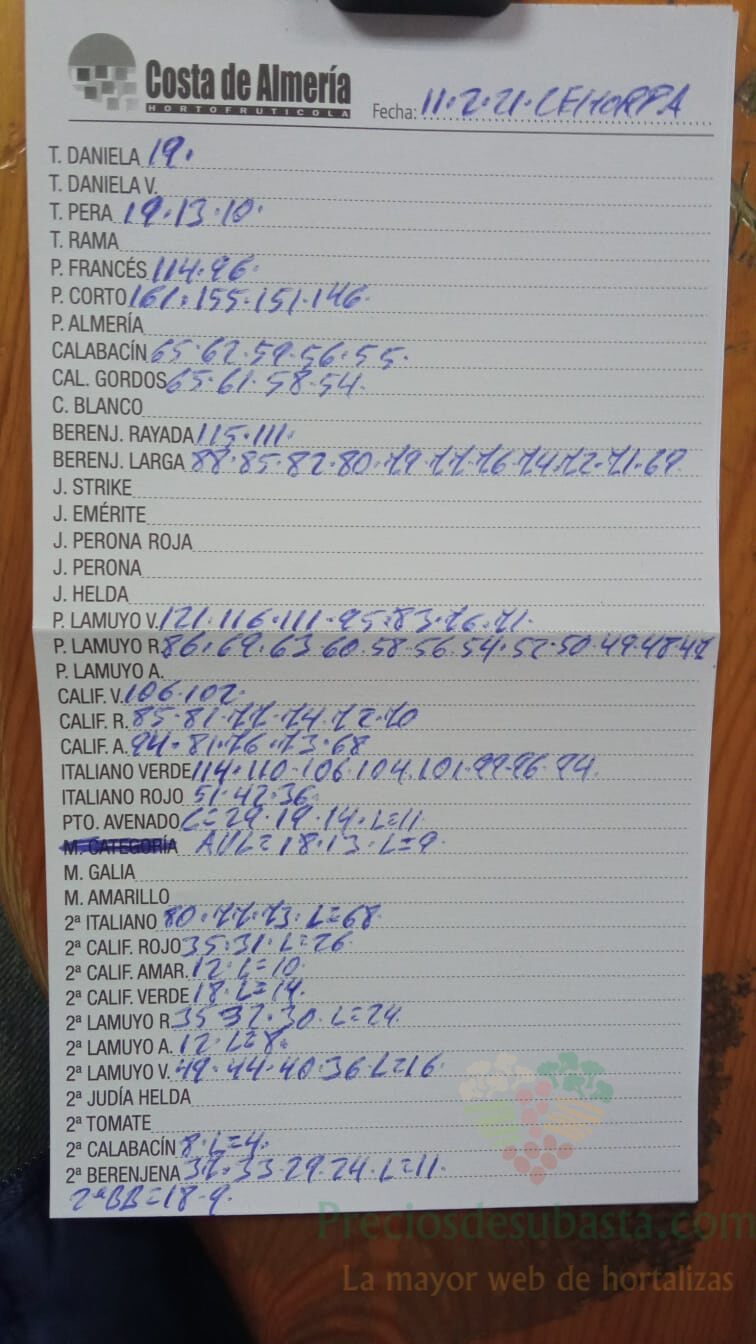 Costa de Almería
HORTOFRUTICOLA
Fecha: 11·2·21·CEHORPA
T. DANIELA 19·
T. DANIELA V.
T. PERA 19·13·10·
T. RAMA
P. FRANCÉS 114·96·
P. CORTO 161·155·151·146·
P. ALMERÍA
CALABACÍN 65·62·59·56·55·
CAL. GORDOS 65·61·58·54·
C. BLANCO
BERENJ. RAYADA 115·111·
BERENJ. LARGA 88·85·82·80·79·77·76·74·72·71·69
J. STRIKE
J. EMÉRITE
J. PERONA ROJA
J. PERONA
J. HELDA
P. LAMUYO V. 121·116·111·95·83·76·71·
P. LAMUYO R. 86·69·63·60·58·56·54·52·50·49·48·47
P. LAMUYO A.
CALIF. V. 106·102·
CALIF. R. 85·81·77·74·72·70
CALIF. A. 94·81·76·73·68
ITALIANO VERDE 114·110·106·104·101·99·96·94·
ITALIANO ROJO 51·42·36·
PTO. AVENADO C=29·19·14·L=11
M. CATEGORÍA AVL=18·13·L=9
M. GALIA
M. AMARILLO
2ª ITALIANO 80·77·73·L=68·
2ª CALIF. ROJO 35·31·L=26·
2ª CALIF. AMAR. 12·L=10·
2ª CALIF. VERDE 18·L=14·
2ª LAMUYO R. 35·32·30·L=24·
2ª LAMUYO A. 12·L=8·
2ª LAMUYO V. 49·44·40·36·L=16·
2ª JUDÍA HELDA
2ª TOMATE
2ª CALABACÍN 8·L=4·
2ª BERENJENA 37·33·29·24·L=11·
2ªBB=18·9·
Preciosdesubasta.com
La mayor web de hortalizas